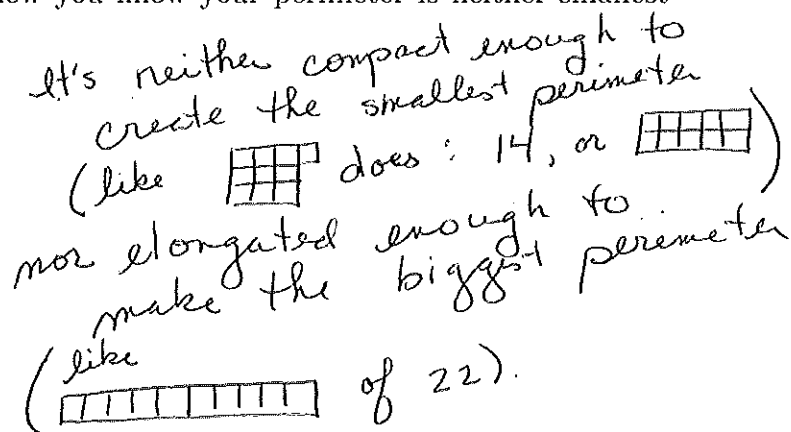 how you know your perimeter is neither smallest
It's neither compact enough to
create the smallest perimeter
(like does: 14, or )
nor elongated enough to
make the biggest perimeter
(like
of 22).